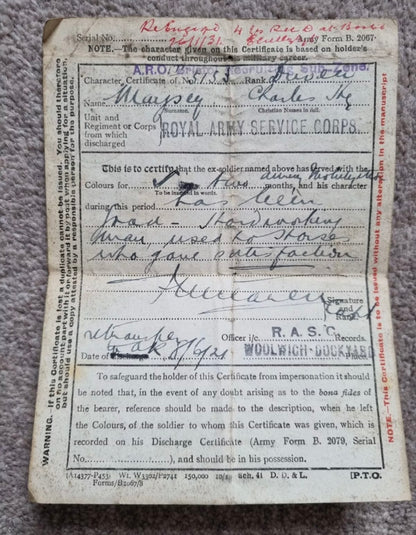 Serial No. Re Engaged 4 Army Form B. 2067.
NOTE.—The character given on this Certificate is based on holder's
conduct throughout his military career.
A.R.O.
Character Certificate of No. Driver
Name Charles Hy
Surname Christian Names in full.
Unit and
Regiment or Corps
from which
discharged
ROYAL ARMY SERVICE CORPS.
This is to certify that the ex-soldier named above has served with the
Colours for Two months, and his character
To be inserted in words.
during this period has been
Good - Hardworking
man used to Horses
who gave satisfaction
Signature
and
Rank.
Officer i/c R. A. S. C. Records.
WOOLWICH-DOCKYARD
Date of 8/6/21
To safeguard the holder of this Certificate from impersonation it should
be noted that, in the event of any doubt arising as to the bona fides of
the bearer, reference should be made to the description, when he left
the Colours, of the soldier to whom this Certificate was given, which is
recorded on his Discharge Certificate (Army Form B. 2079, Serial
No. ), and should be in his possession.
(A14377-P453) Wt. W3362/P2741 150,000 Sch. 41 D. D. & L. [P.T.O.
Forms/B2067/8
WARNING. If this Certificate is lost a duplicate cannot be issued. You should therefore
on no account part with it or forward it by post when applying for a situation,
but should use a copy attested by a responsible person for the purpose.
NOTE.—This Certificate is to be issued without any alteration in the manuscript